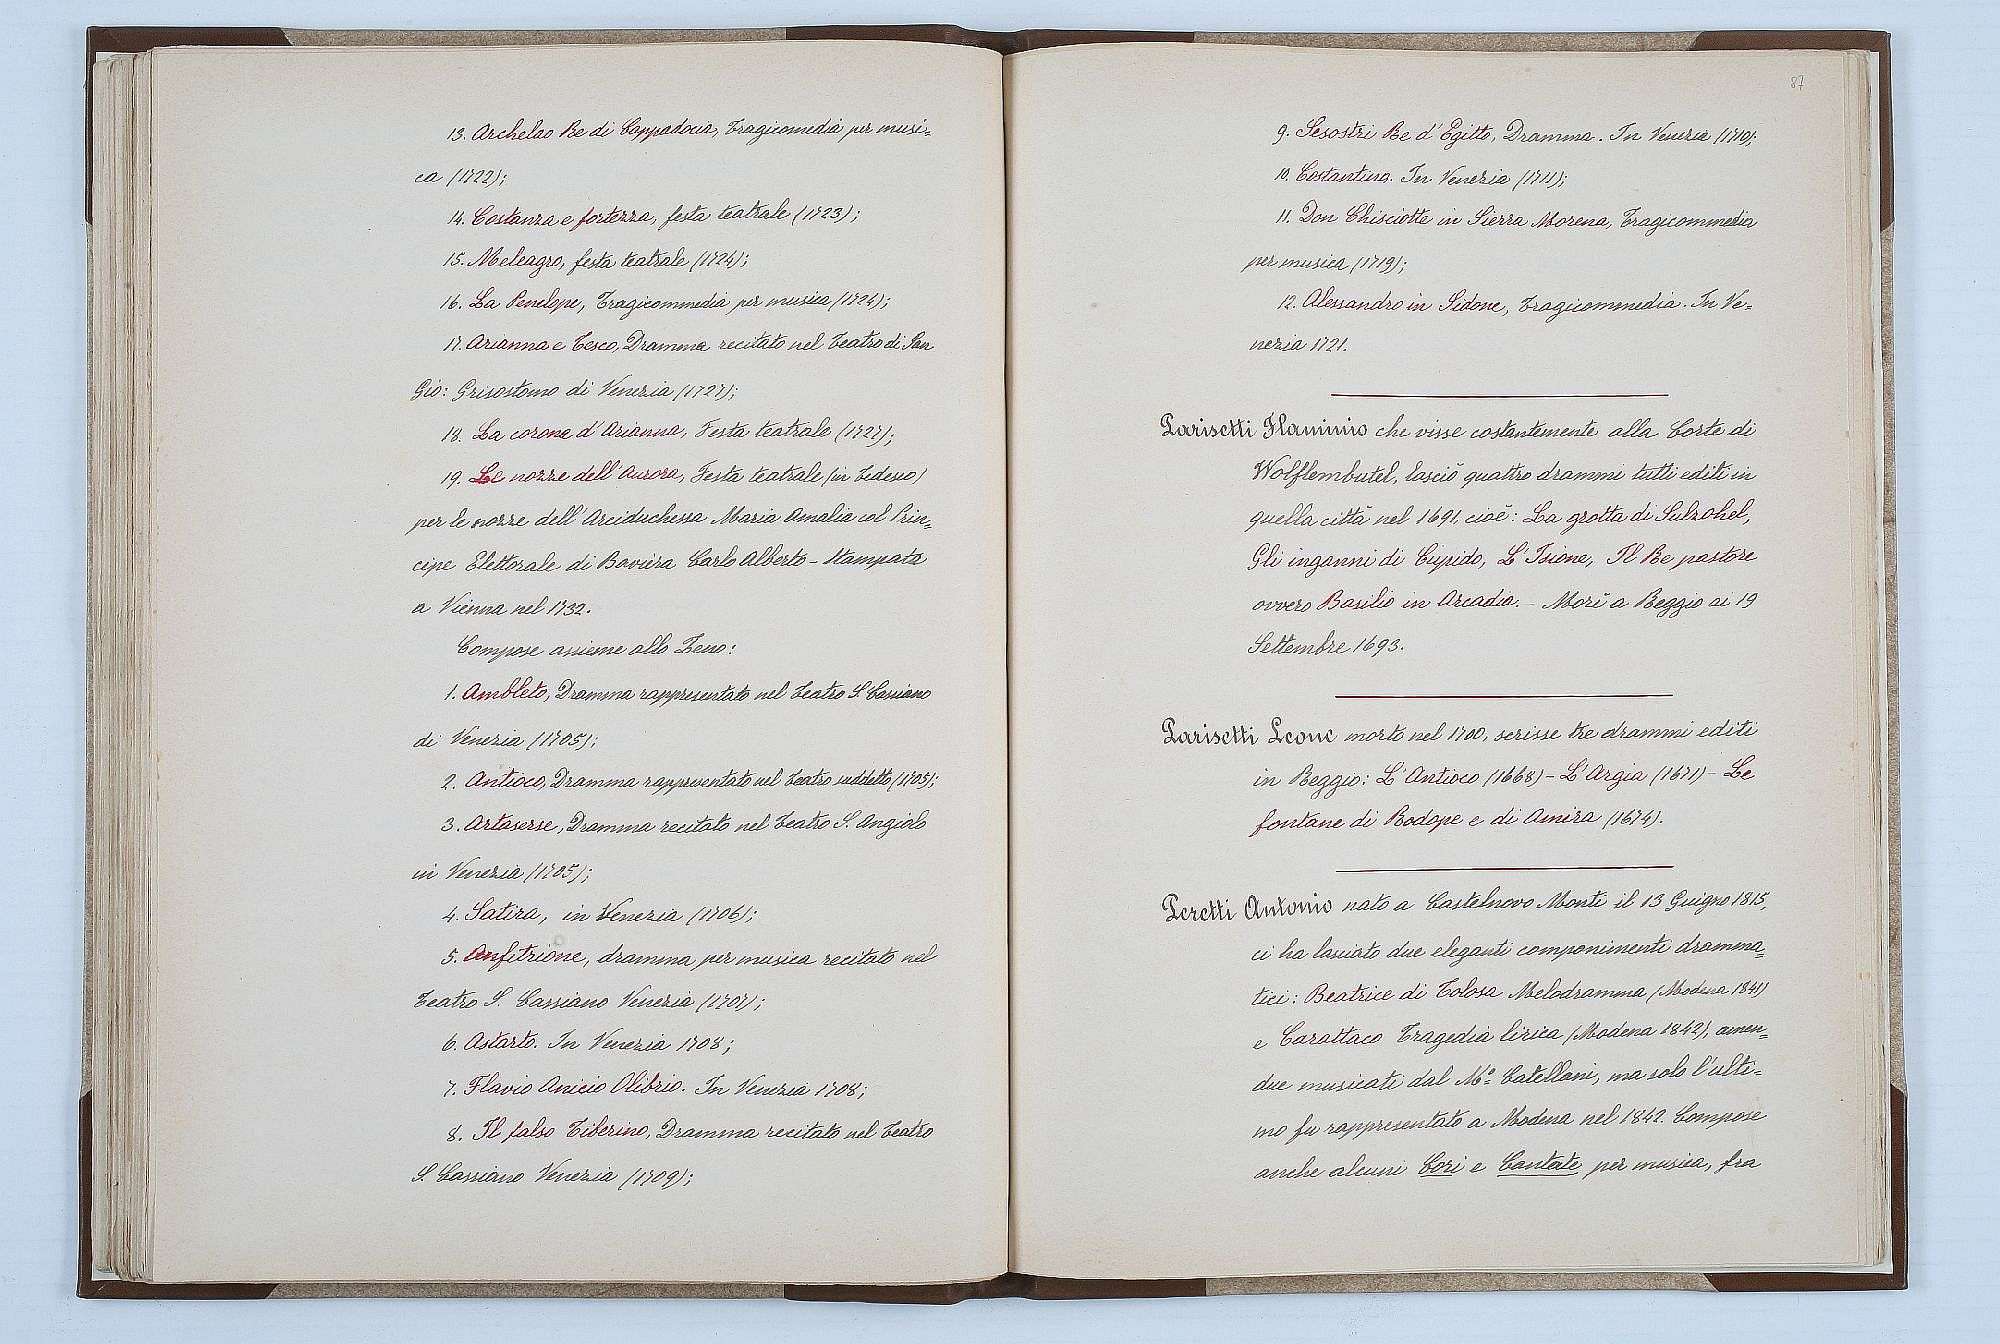 13. Archelao Re di Cappadocia, Tragicomedia per musi=
ca (1722);
14. Costanza e fortezza, festa teatrale (1723);
15. Meleagro, festa teatrale (1724);
16. La Penelope, Tragicommedia per musica (1724);
17. Arianna e Teseo, Dramma recitato nel Teatro di San
Gio: Grisostomo di Venezia (1727);
18. La corona d'Arianna, Festa teatrale (1727);
19. Le nozze dell'Aurora, Festa teatrale (in Tedesco)
per le nozze dell'Arciduchessa Maria Amalia col Prin=
cipe Elettorale di Baviera Carlo Alberto – Stampata
a Vienna nel 1732.
Compose assieme allo Zeno:
1. Ambleto, Dramma rappresentato nel Teatro S. Cassiano
di Venezia (1705);
2. Antioco, Dramma rappresentato nel Teatro suddetto (1705);
3. Artaserse, Dramma recitato nel Teatro S. Angiolo
in Venezia (1705);
4. Satira, in Venezia (1706);
5. Anfitrione, dramma per musica recitato nel
Teatro S. Cassiano Venezia (1707);
6. Astarto. In Venezia 1708;
7. Flavio Anicio Olibrio. In Venezia 1708;
8. Il falso Tiberino, Dramma recitato nel Teatro
S. Cassiano Venezia (1709);
87
9. Sesostri Re d'Egitto, Dramma. In Venezia (1710);
10. Costantino. In Venezia (1711);
11. Don Chisciotte in Sierra Morena, Tragicommedia
per musica (1719);
12. Alessandro in Sidone, Tragicommedia. In Ve=
nezia 1721.
Parisetti Flaminio che visse costantemente alla Corte di
Wolflembutel, lasciò quattro drammi tutti editi in
quella città nel 1691, cioè: La grotta di Sulzohel,
Gli inganni di Cupido, L'Isione, Il Re pastore
ovvero Basilio in Arcadia. – Morì a Reggio ai 19
Settembre 1693.
Parisetti Leone morto nel 1700, scrisse tre drammi editi
in Reggio: L'Antioco (1668) – L'Argia (1671) – Le
fontane di Rodope e di Amira (1674).
Peretti Antonio nato a Castelnovo Monti il 13 Guigno 1815,
ci ha lasciato due eleganti componimenti dramma=
tici: Beatrice di Tolosa Melodramma (Modena 1841)
e Carattaco Tragedia lirica (Modena 1842), amen=
due musicati dal Mº Catellani, ma solo l'ulti=
mo fu rappresentato a Modena nel 1842. Compose
anche alcuni Cori e Cantate per musica, fra